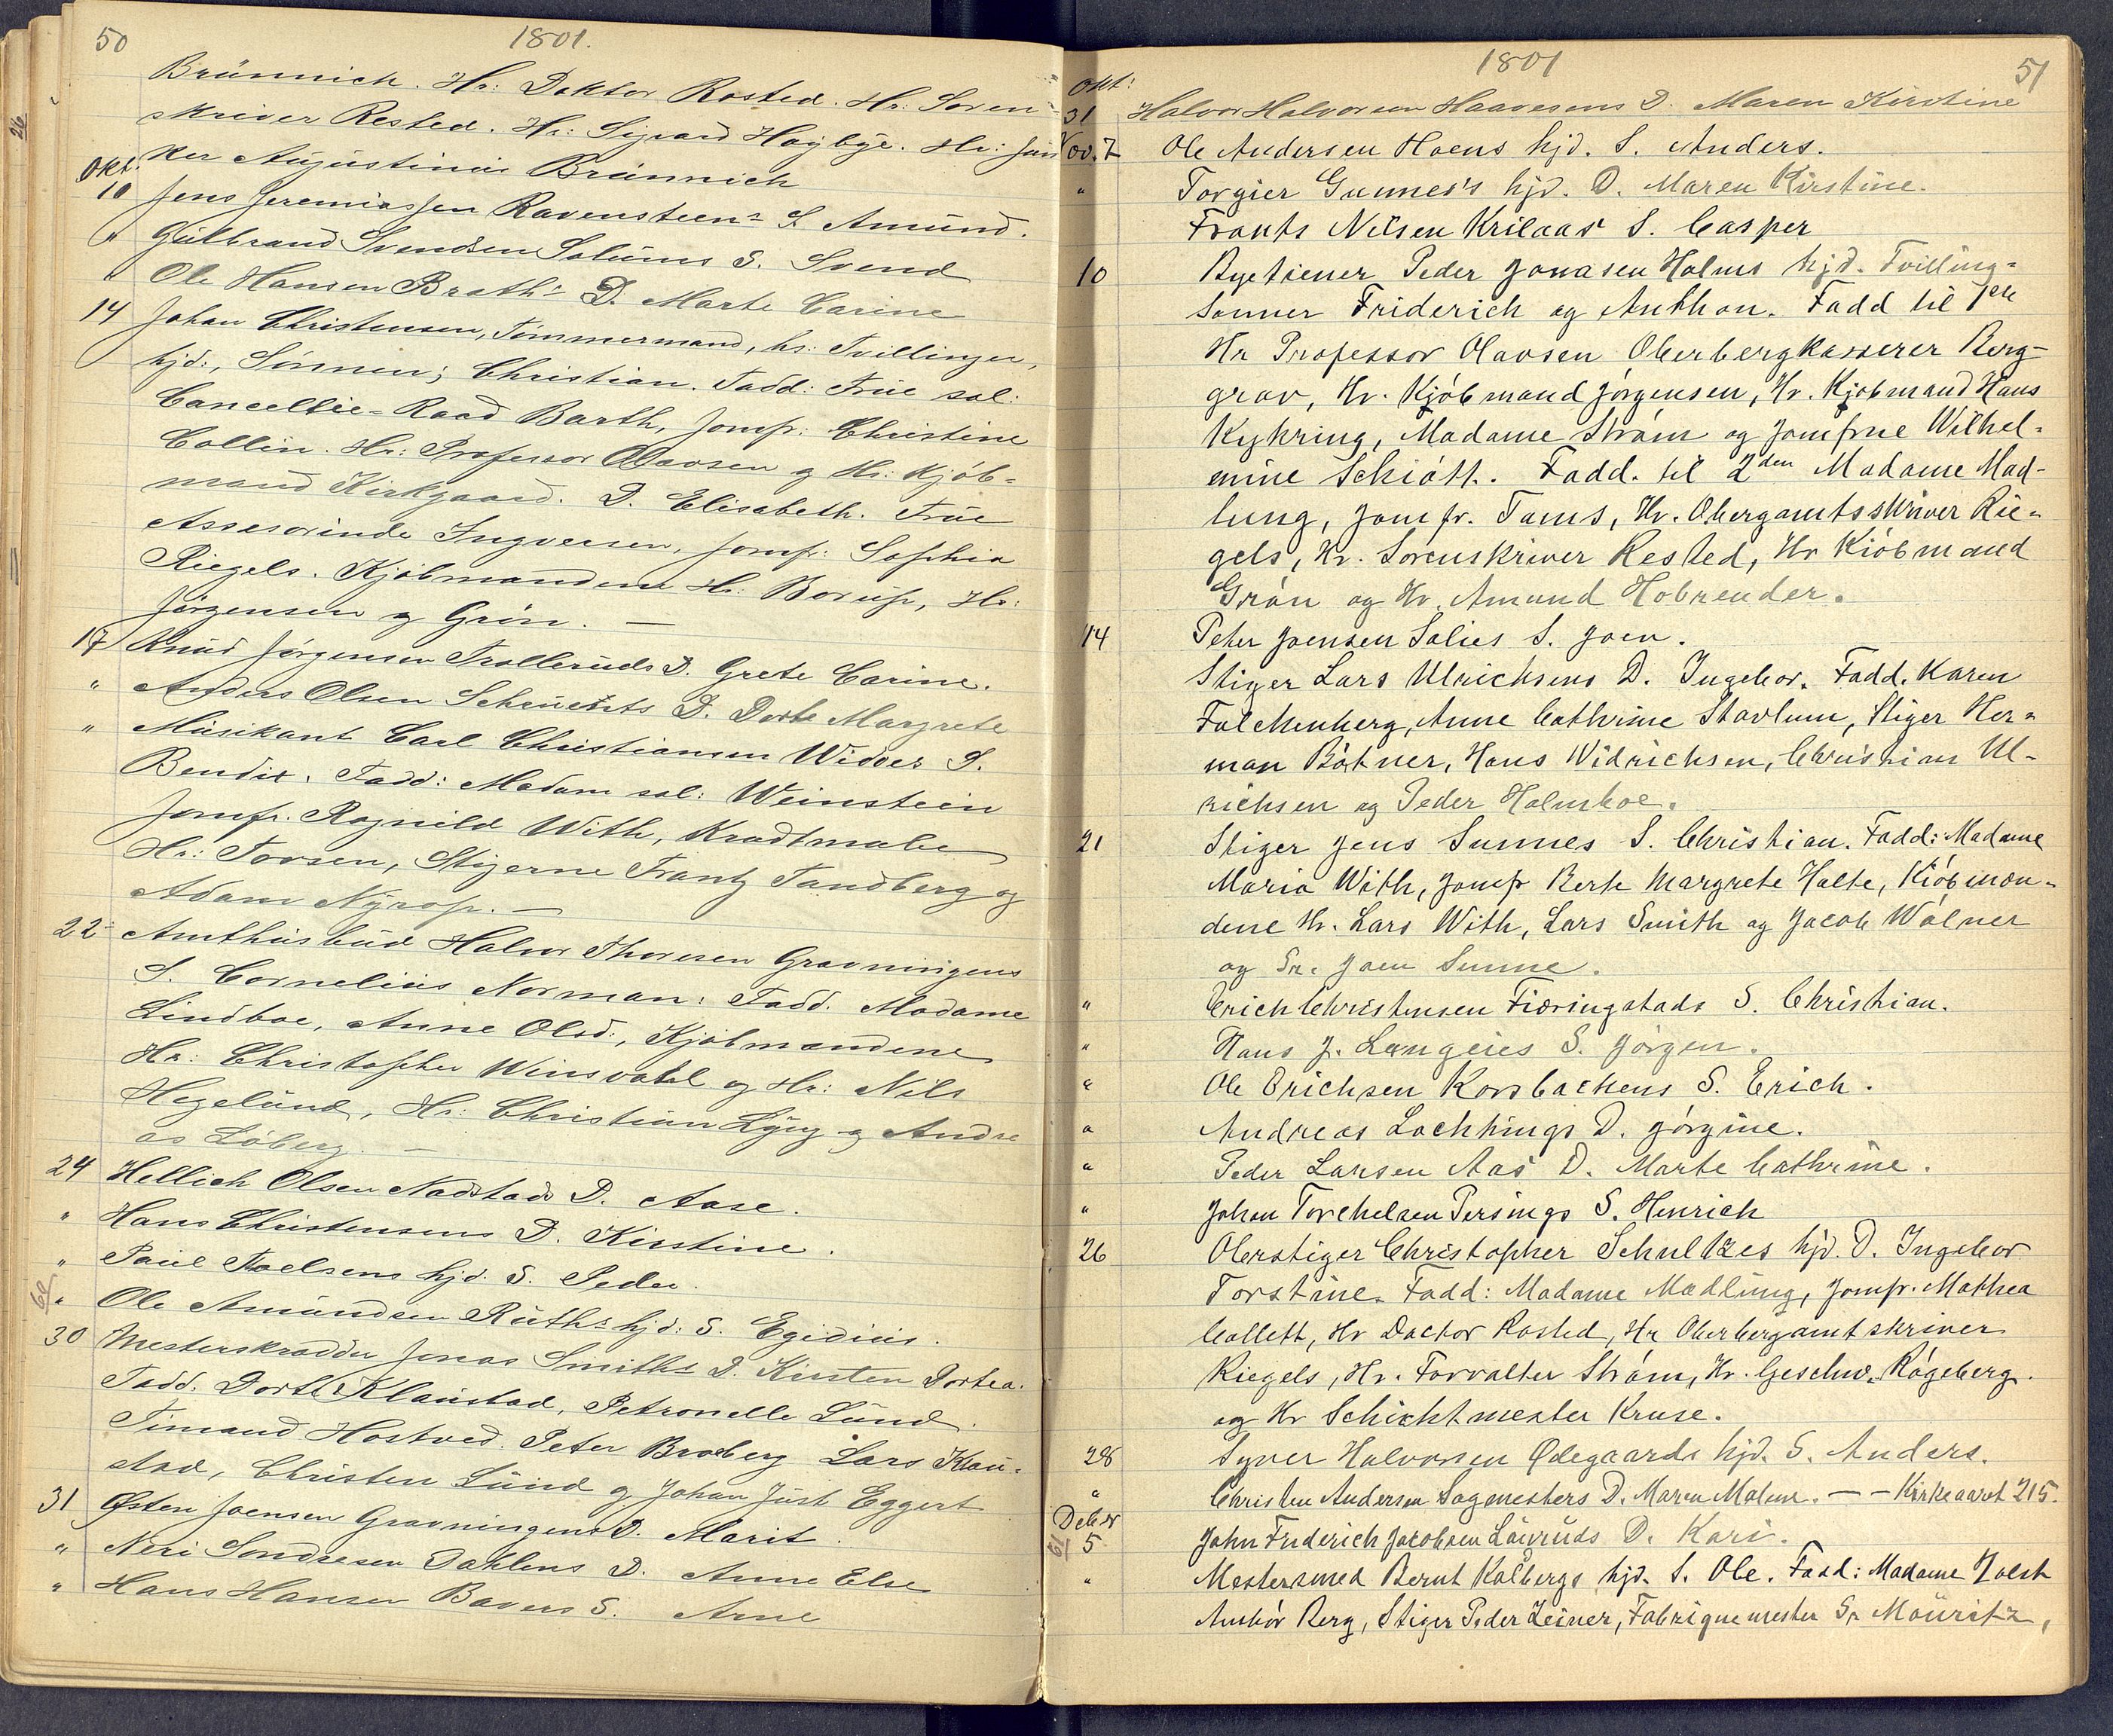 50
1801.
Brünnich. Hr: Doktor Rosted. Hr: Soren-
skriver Rested. Hr: Sigvard Hagbye. Hr: Jun
ker Augustinus Brünnich
Okt.
10 Jens Jeremiassen Ravensteens S. Amund.
" Gulbrand Svendsen Solums S. Svend
" Ole Hansen Braths D. Marte Carine
14 Johan Christensen, Tömmermand, hs: Tvillinger,
hjd:, Sönnen; Christian. Fadd: Frue sal:
Cancellie-Raad Barth, Jomfr: Christine
Collin. Hr: Professor Olavsen og Hr: Kjöb-
mand Kirkgaard. D. Elisabeth. Frue
Assesorinde Ingversen, Jomf: Sophia
Riegels. Kjöbmændene Hr: Borup, Hr:
Jörgensen og Grön. —
17 Knud Jörgensen Trolleruds D. Grete Carine.
" Anders Olsen D. Dorte Margrete
" Musikant Carl Christiansen Widdes S.
Bendix. Fadd: Madam sal: Weinstein
Jomfr. Ragnild With, Krudtmaler
Hr: Tovsen, Stigerne Frantz Sandberg og
Adam Nyrop. —
22 Amthusbud Halvor Thoresen Gravningens
S. Cornelius Norman: Fadd. Madame
Lindboe, Anne Olsd:, Kjöbmændene
Hr: Christopher Winsvold og Hr: Nils
Hegelund, Hr: Christian Lyng og Andre
as Löberg. —
24 Hellich Olsen Nadstads D. Aase.
" Hans Christensens D. Kirstine.
" Paul Noelsens hjd. S. Peder.
" Ole Amundsen Ruths hjd: S. Egidius.
30 Mesterskrædder Jonas Smiths D. Kirsten Dortea.
Fadd. Dorthe Klaustad, Petronelle Lund
Timand Hostved. Peter Broberg Lars Klau-
stad, Christen Lund og Johan Just Eggert
31 Østen Joensen Gravningens D. Marit.
" Neri Sondresen Dahlens D. Anne Else
" Hans Hansen Bavers S. Arne
1801
51
Okt:
31 Halvor Halvorsen Haavesens D. Maren Kirstine
Nov. 7 Ole Andersen Hoens hjd. S. Anders.
" Torgier Gunnes's hjd. D. Maren Kirstine.
Frants Nilsen Krilaas S. Casper
10 Byetiener Peder Jonasen Holms hjd. Tvilling-
sonner Friderich og Anthon. Fadd til 1ste
Hr Professor Olavsen Oberbergkasserer Berg-
grav, Hr. Kjöbmand Jörgensen, Hr. Kjöbmand Hans
Kyhring, Madame Ström og Jomfrue Wilhel-
mine Schiött. Fadd. til 2den Madame Mad-
lung, Jomfr. Tams, Hr. Obergamtsskriver Rie-
gels, Hr. Sorenskriver Rested, Hr Kiöbmand
Grön og Hr. Amund Hobrender.
14 Peter Joensen Salies S. Joen.
Stiger Lars Ulrichsens D. Ingebor. Fadd. Karen
Falchenberg, Anne Cathrine Stavlum, Stiger Her-
man Bötner, Hans Widrichsen, Christian Ul-
richsen og Peder Holmboe.
21 Stiger Jens Sunnes S. Christian. Fadd: Madame
Maria With, Jomfr Berte Margrete Holte, Kiöbmæn-
dene Hr. Lars With, Lars Smith og Jacob Wölner
og Sr. Joen Sunne.
" Erich Christensen Fiæringstads S. Christian.
" Hans J. Langeies S. Jörgen.
" Ole Erichsen Korsbackens S. Erich.
" Andreas Lochhings D. Jörgine.
" Peder Larsen Aas D. Marte Cathrine.
" Johan Torchelsen Persings S. Henrich
26 Oberstiger Christopher Schultzes hjd. D. Ingebor
Torstine. Fadd: Madame Madlung, Jomfr. Mathea
Collett, Hr Doctor Rosted, Hr Oberbergamtskriver
Riegels, Hr. Forvalter Ström, Hr. Geschw. Rögeberg.
og Hr Schichtmester Kruse.
28 Syver Halvorsen Ødegaards hjd. S. Anders.
" Christen Andersen Sagmesters D. Maren Malene. — — Kirkeaaret 215.
Debr
5 John Friderich Jacobsen Lauruds D. Kari.
" Mestersmed Bernt Kolbergs hjd. S. Ole. Fadd: Madame Holst
Berg, Stiger Peder Zeiner, Fabriquemester Sr Mouritz,